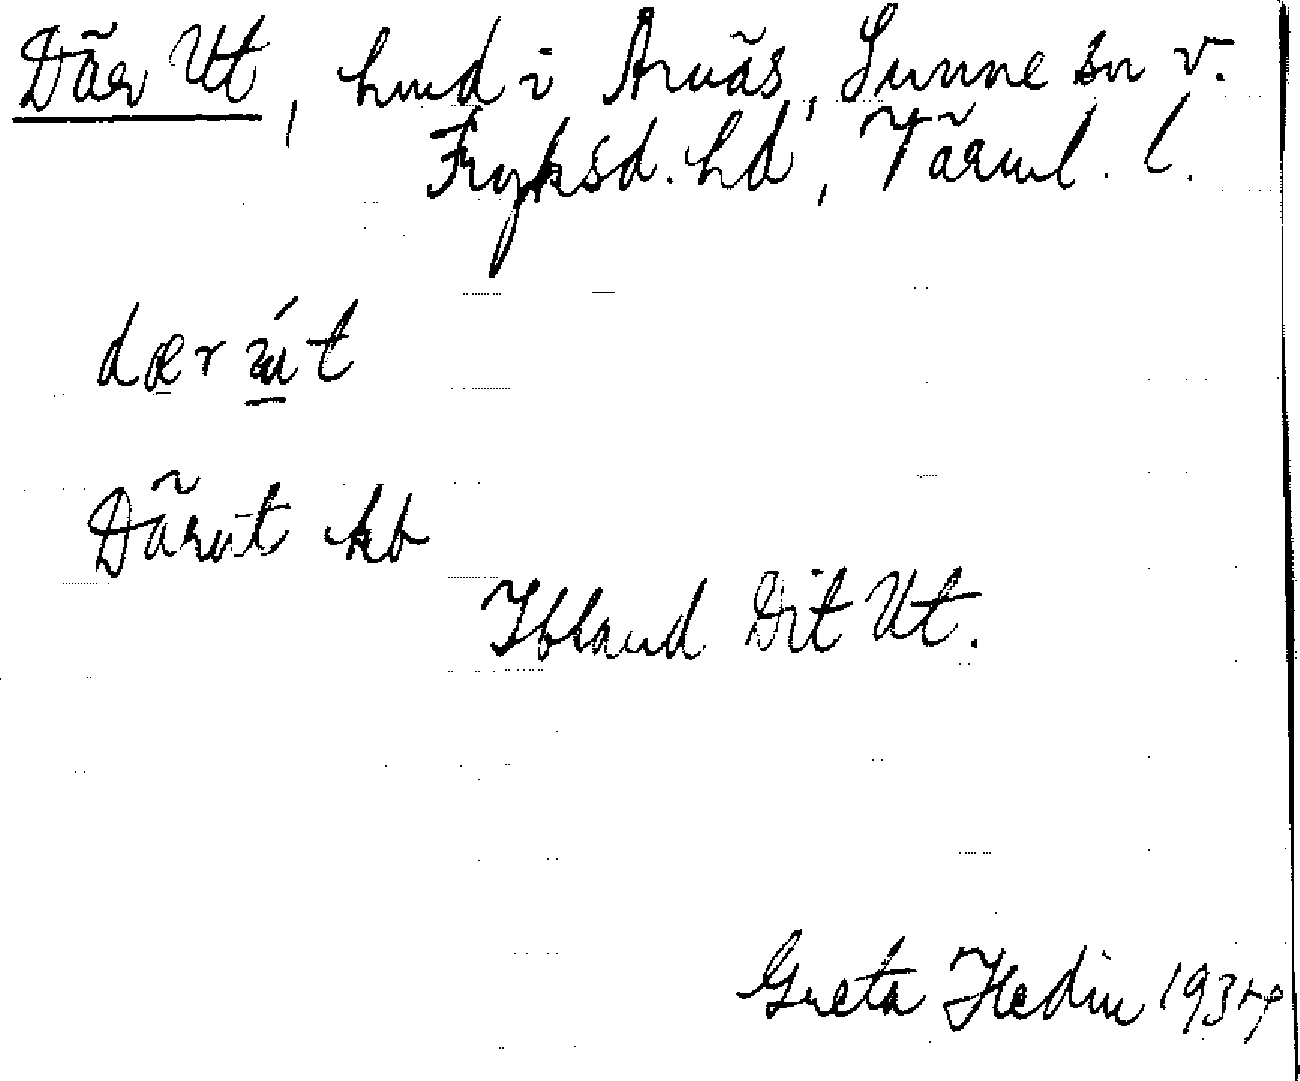 Där Ut, hmd i Arnäs, Sunne sn v.
Fryksd. hd, Värml. l.
dær út
Därut kb
Ibland Dit Ut.
Greta Hedin 1934